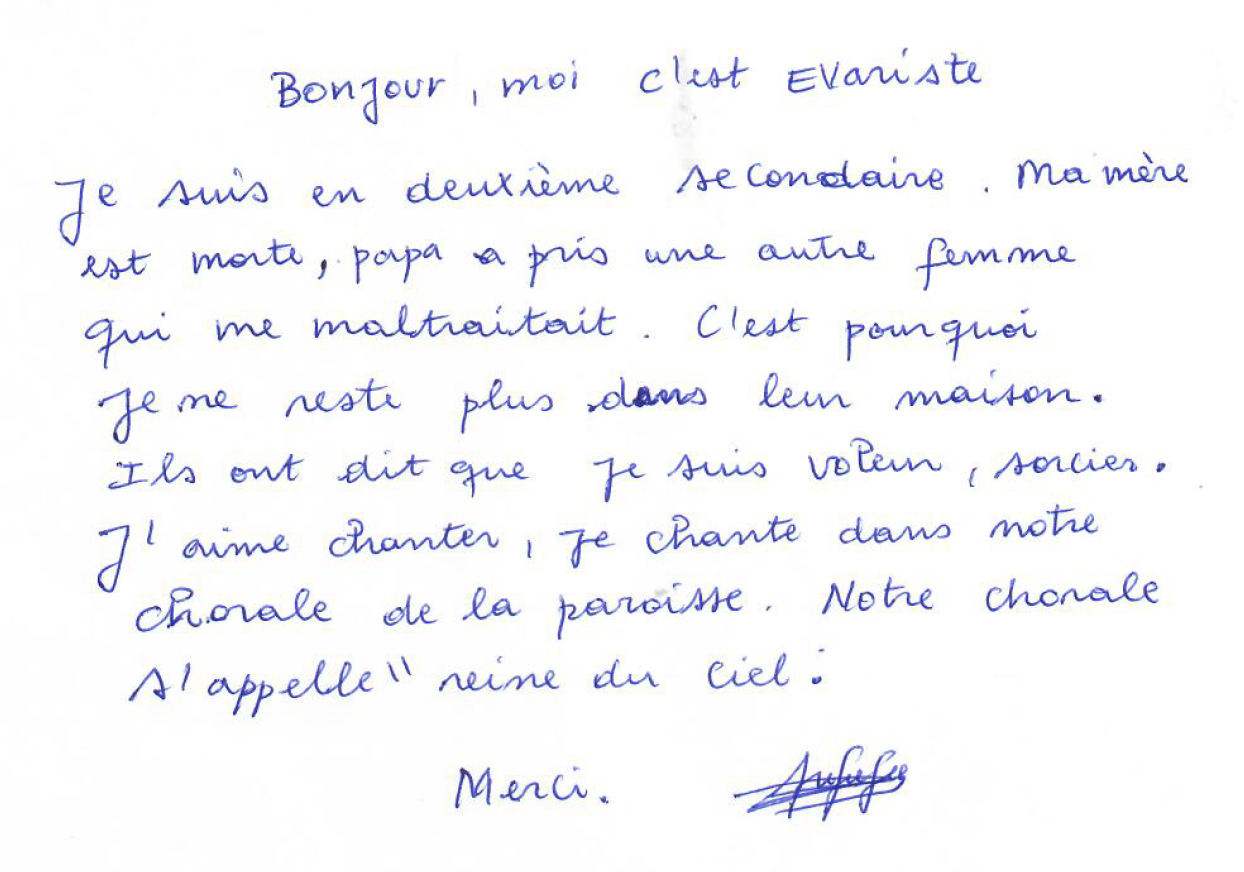 Bonjour, moi c'est Evariste
Je suis en deuxième secondaire. Ma mère
est morte, papa a pris une autre femme
qui me maltraitait. C'est pourquoi
je ne reste plus dans leur maison.
Ils ont dit que je suis voleur, sorcier.
J'aime chanter, je chante dans notre
chorale de la paroisse. Notre chorale
s'appelle " reine du ciel.
Merci.